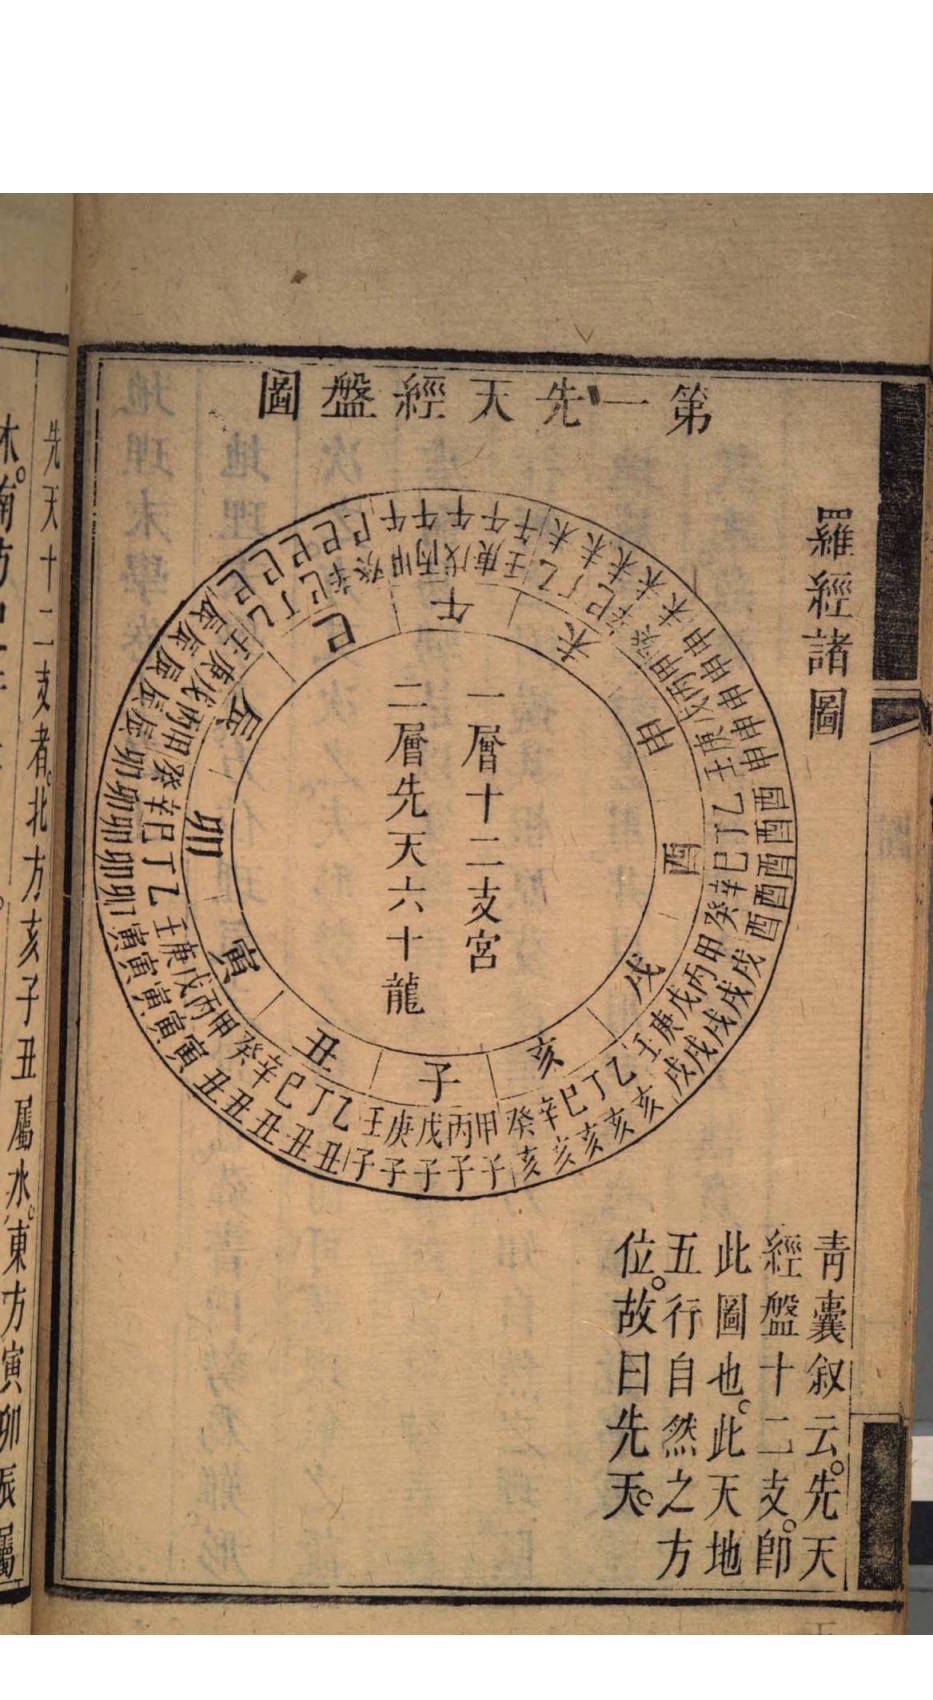 羅經諸圖
第一先天經盤圖
一層十二支宮
二層先天六十龍
子丑寅卯辰巳午未申酉戌亥
甲子丙子戊子庚子壬子
乙丑丁丑己丑辛丑癸丑
甲寅丙寅戊寅庚寅壬寅
乙卯丁卯己卯辛卯癸卯
甲辰丙辰戊辰庚辰壬辰
乙巳丁巳己巳辛巳癸巳
甲午丙午戊午庚午壬午
乙未丁未己未辛未癸未
甲申丙申戊申庚申壬申
乙酉丁酉己酉辛酉癸酉
甲戌丙戌戊戌庚戌壬戌
乙亥丁亥己亥辛亥癸亥
青囊叙云。先天
經盤十二支。即
此圖也。此天地
五行自然之方
位。故曰先天。
先天十二支者。北方亥子丑屬水。東方寅卯辰屬
木。南方